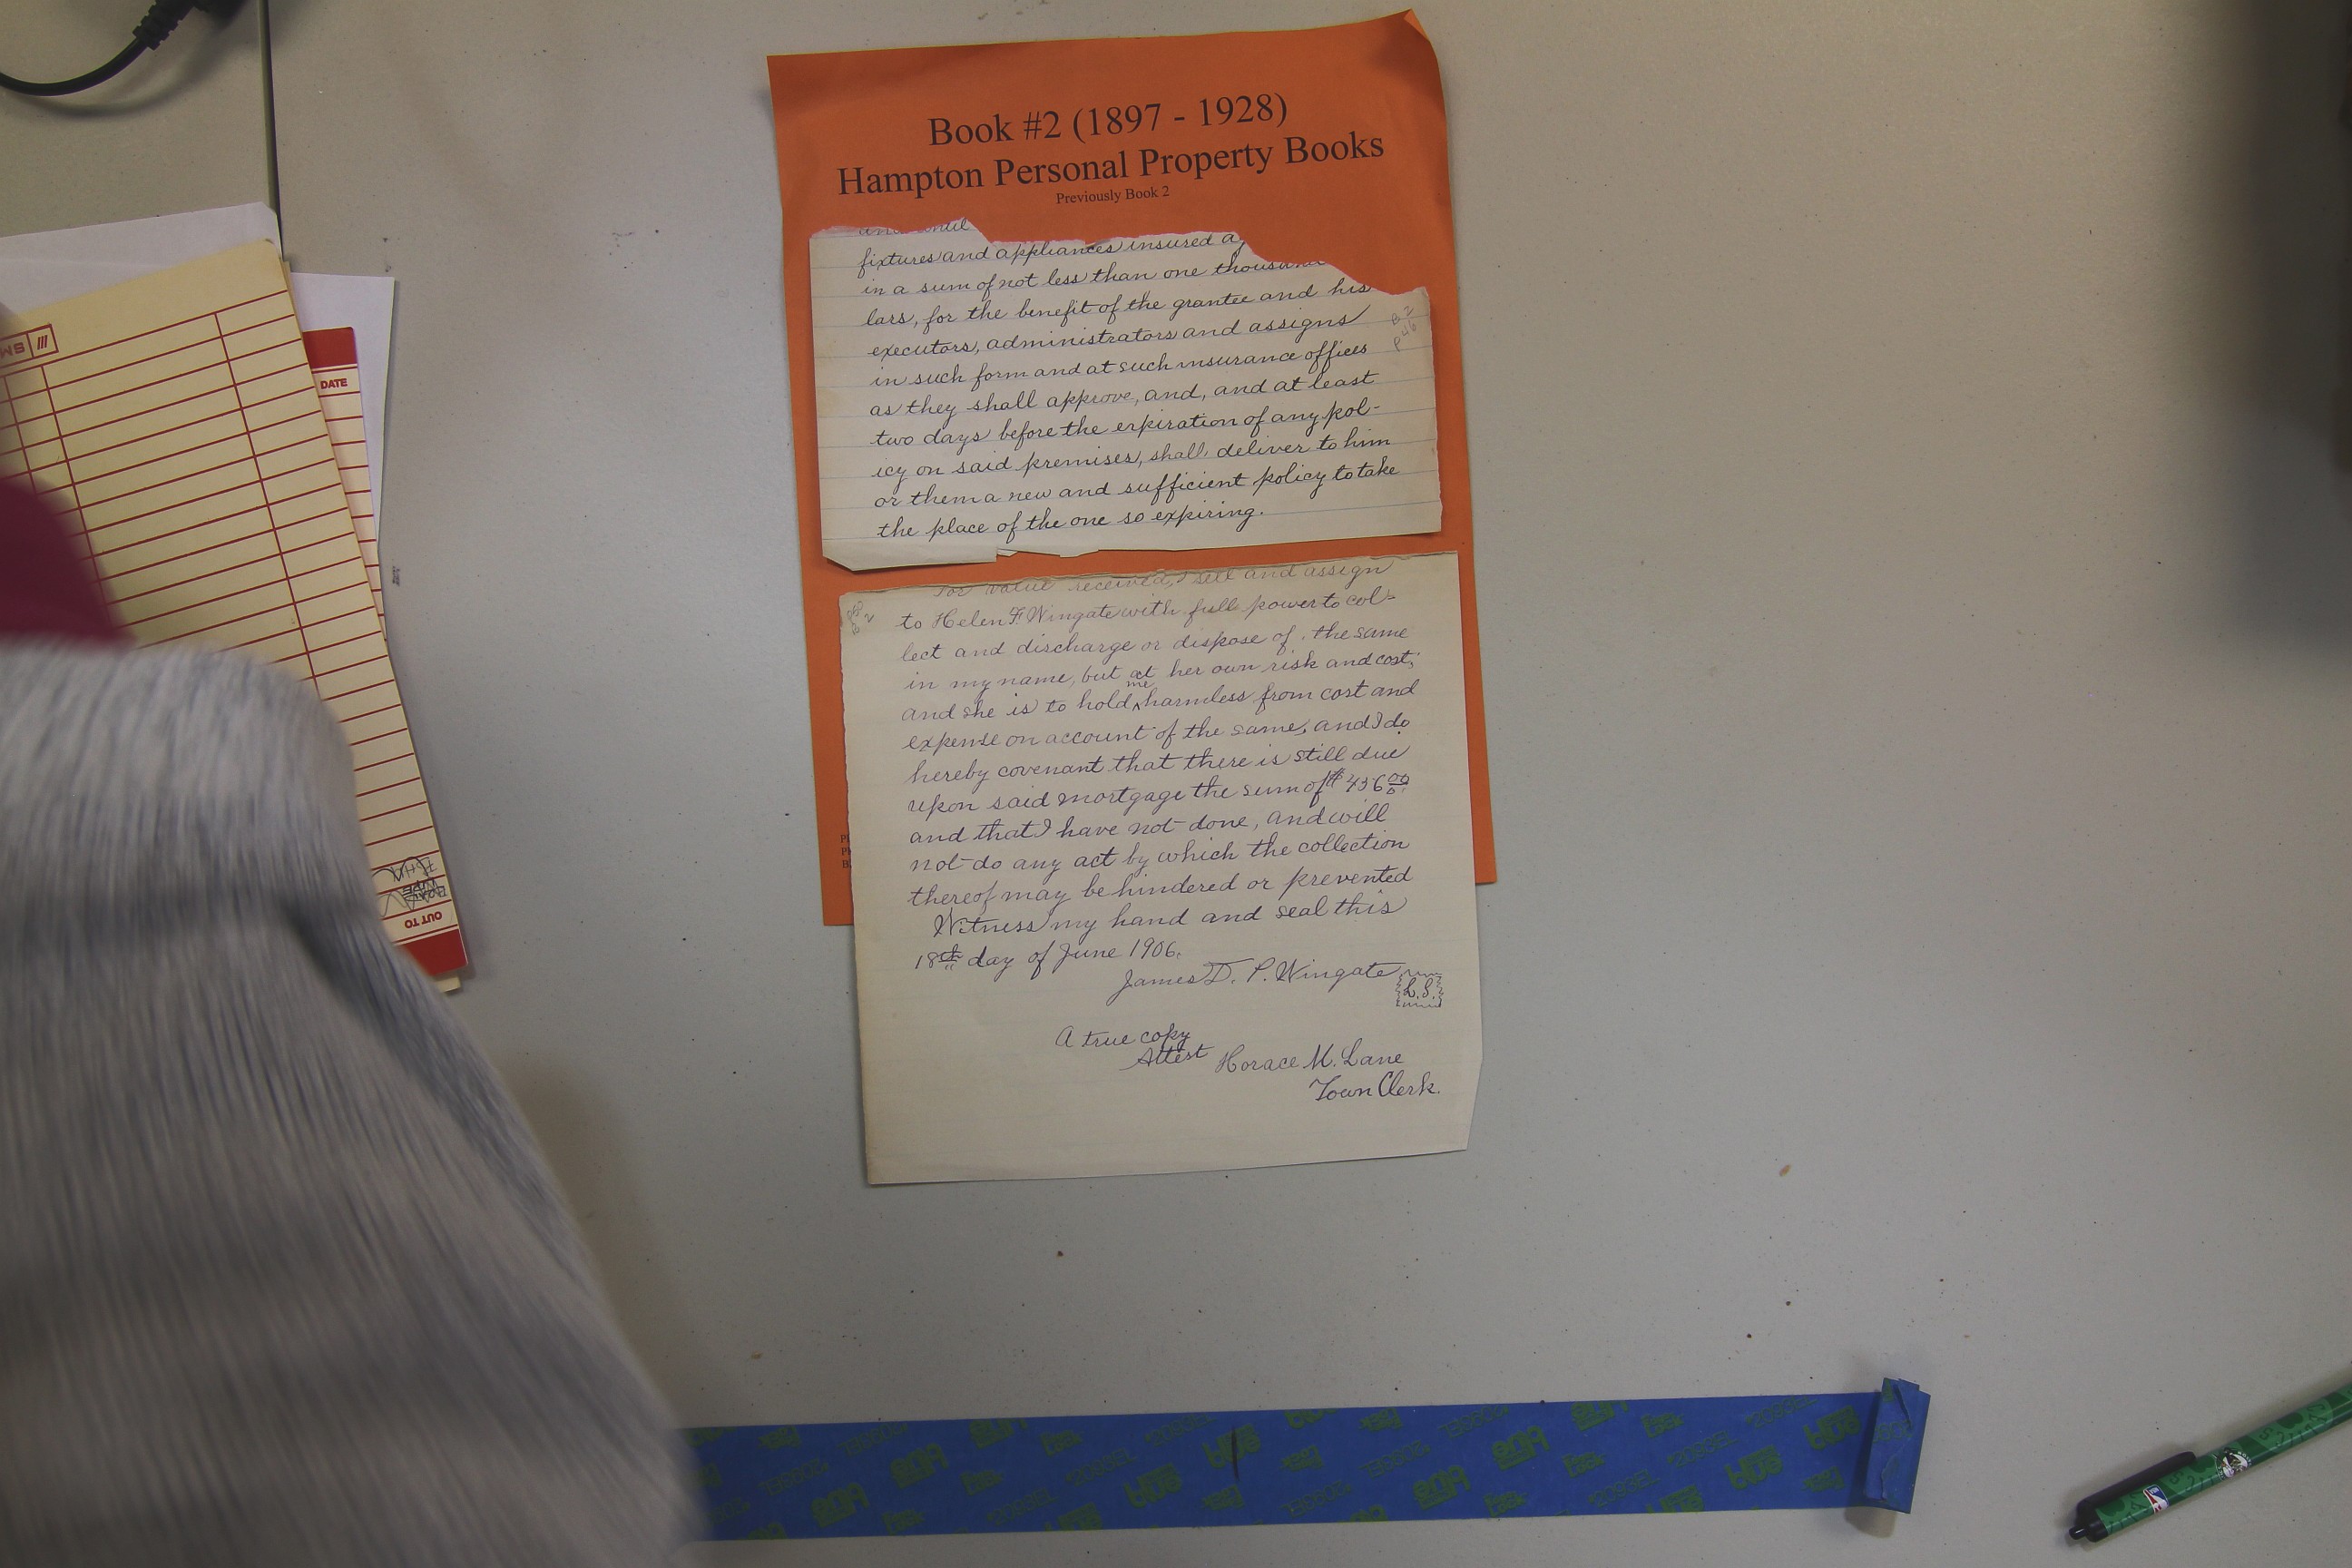 Book #2 (1897 - 1928)
Hampton Personal Property Books
Previously Book 2
and until
fixtures and appliances insured
in a sum of not less than one thousand
lars, for the benefit of the grantee and his
executors, administrators and assigns
in such form and at such insurance offices
as they shall approve, and, and at least
two days before the expiration of any pol-
icy on said premises, shall deliver to him
or them a new and sufficient policy to take
the place of the one so expiring.
B 2
P 46
For value received, I sell and assign
to Helen F. Wingate with full power to col-
lect and discharge or dispose of the same
in my name, but at her own risk and cost;
and she is to hold me harmless from cost and
expense on account of the same, and I do
hereby covenant that there is still due
upon said mortgage the sum of $436 00
and that I have not done, and will
not do any act by which the collection
thereof may be hindered or prevented
Witness my hand and seal this
18th day of June 1906.
James D. P. Wingate L.S.
A true copy
Attest Horace M. Lane
Town Clerk.
DATE
OUT TO